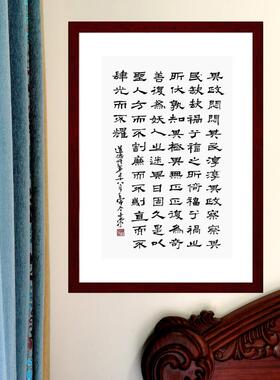 其政悶悶其民淳淳其政察察其
民缺缺禍兮福之所倚福兮禍之
所伏孰知其極其無正正復為奇
善復為妖人之迷其日固久是以
聖人方而不割廉而不劌直而不
肆光而不耀
道德經第五十八章